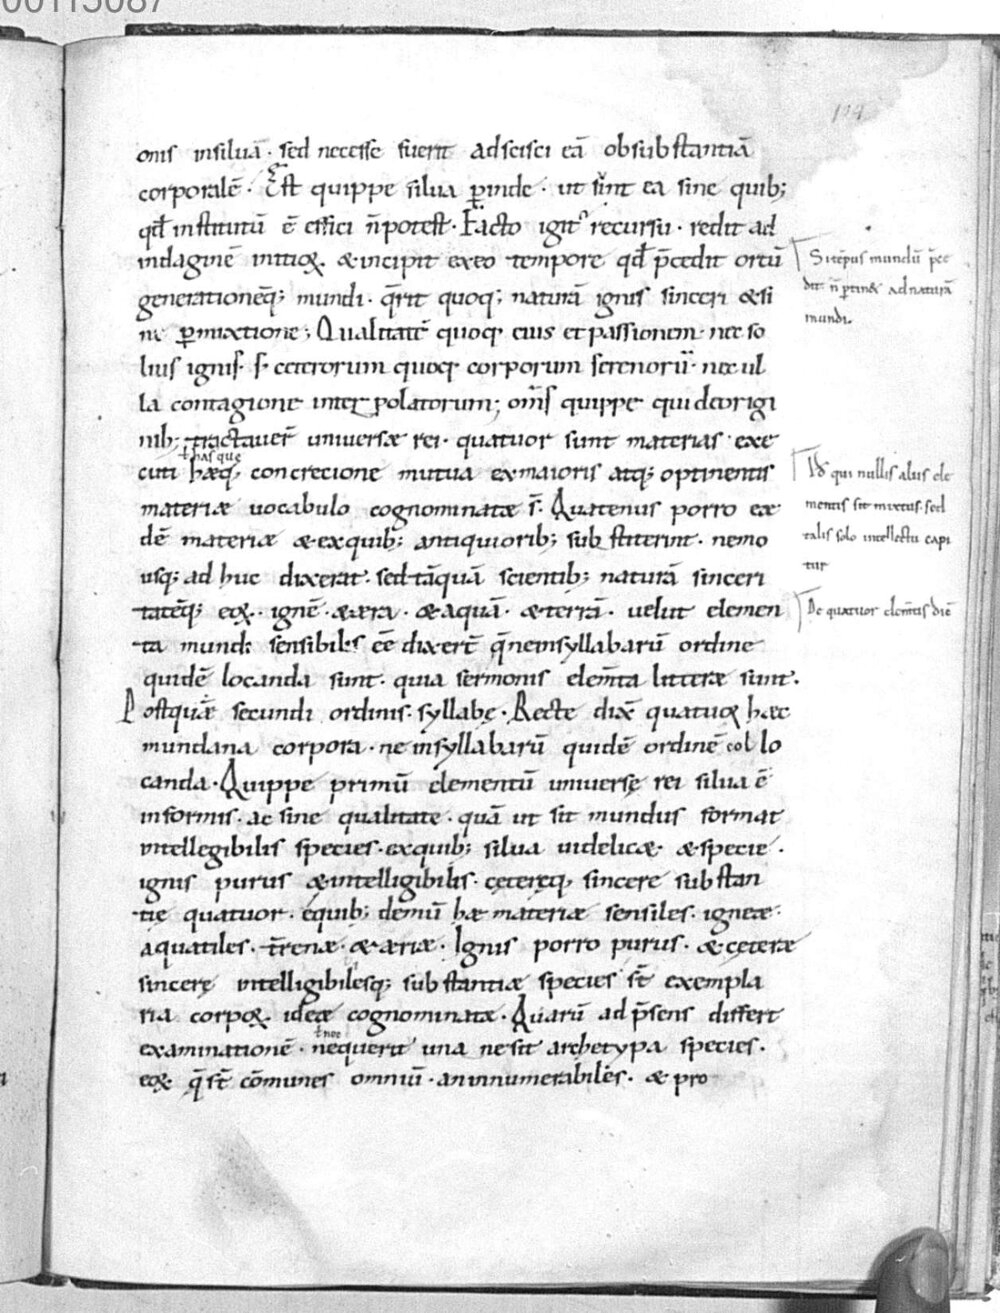 00115087
114
onis insiluā · sed necesse fuerit adscisci eā obsubstantiā
corporalē · Est quippe silua p̄inde · ut sint ea sine quib;
qđ institutū ē effici n̄potest · Facto igit᷒ recursu · redit ad
indaginē initioꝝ · &incipit exeo tempore qđ p̄cedit ortū
generationēq; mundi · q̄rit quoq; naturā ignis sinceri &si
ne p̄mixtione; Qualitatē quoq; eius et passionem · nec so
lius ignis · s· ceterorum quoq; corporum serenorū · nec ul
la contagione inter polatorum; om̄s quippe qui deorigi
nib; tractauer̄ uniuersæ rei · quatuor sunt materias exe
ł hasque
cuti hæq; concrecione mutua exmaioris atq; optinentis
materiæ uocabulo cognominatæ s̄ · Quatenus porro eæ
dē materiæ &exquib; antiquiorib; substiterint · nemo
usq; ad huc dixerat · sed tāquā scientib; naturā sinceri
tatēq; eoꝝ · ignē · &æra · &aquā · &terrā · uelut elemen
ta mundi sensibiles eē dixert̄ q̄neinsyllabarū ordine
quidē locanda sunt · quia sermonis elem̄ta litteræ sunt ·
Postquā secundi ordinis · syllabę · Recte dix̄ quatuoꝝ hæc
mundana corpora · ne insyllabarū quidē ordinē collo
canda · Quippe primū elementū uniuersę rei silua ē
informis · ac sine qualitate · quā ut sit mundus format
intellegibilis species · exquib; silua uidelic& · &specie ·
ignis purus &intelligibilis · cęteręq; sincere substan
tię quatuor · equib; demū hæ materiæ sensiles · igneæ ·
aquatiles · t̄renæ · &æriæ · Ignis porro purus · &ceteræ
sincerę intelligibilesq; substantiæ species st̄ exempla
ria corpoꝝ · ideæ cognominatæ · Quarū ad p̄sens differt
ł nec
examinationē · nequerit una ne sit archetypa species ·
eoꝝ q̄ st̄ cōmunes omniū · an innumerabiles · & pro
Si tēpus mundū p̄ce
dit n̄ ptin& ad naturā
mundi.
Id qui nullis aliis ele
mentis sit mixtus · sed
talis solo intellectu capi
tur
De quatuor elem̄tis diē